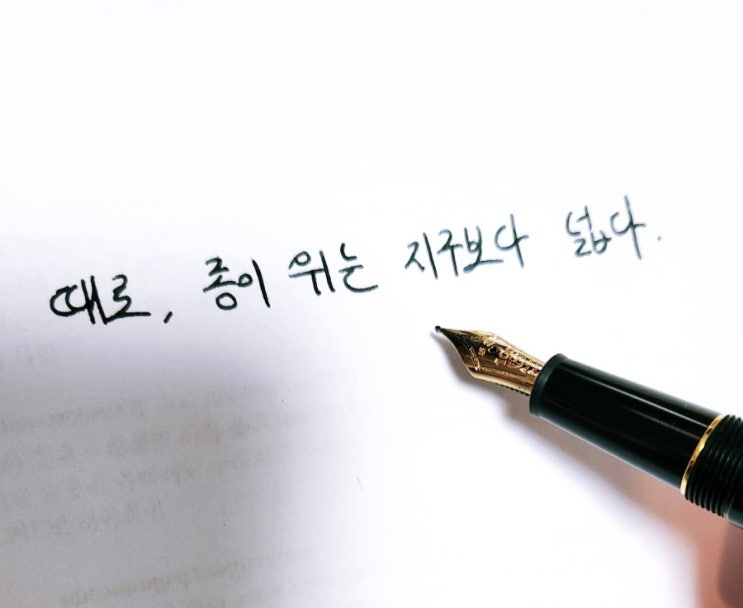 때로, 종이 위는 지구보다 넓다.